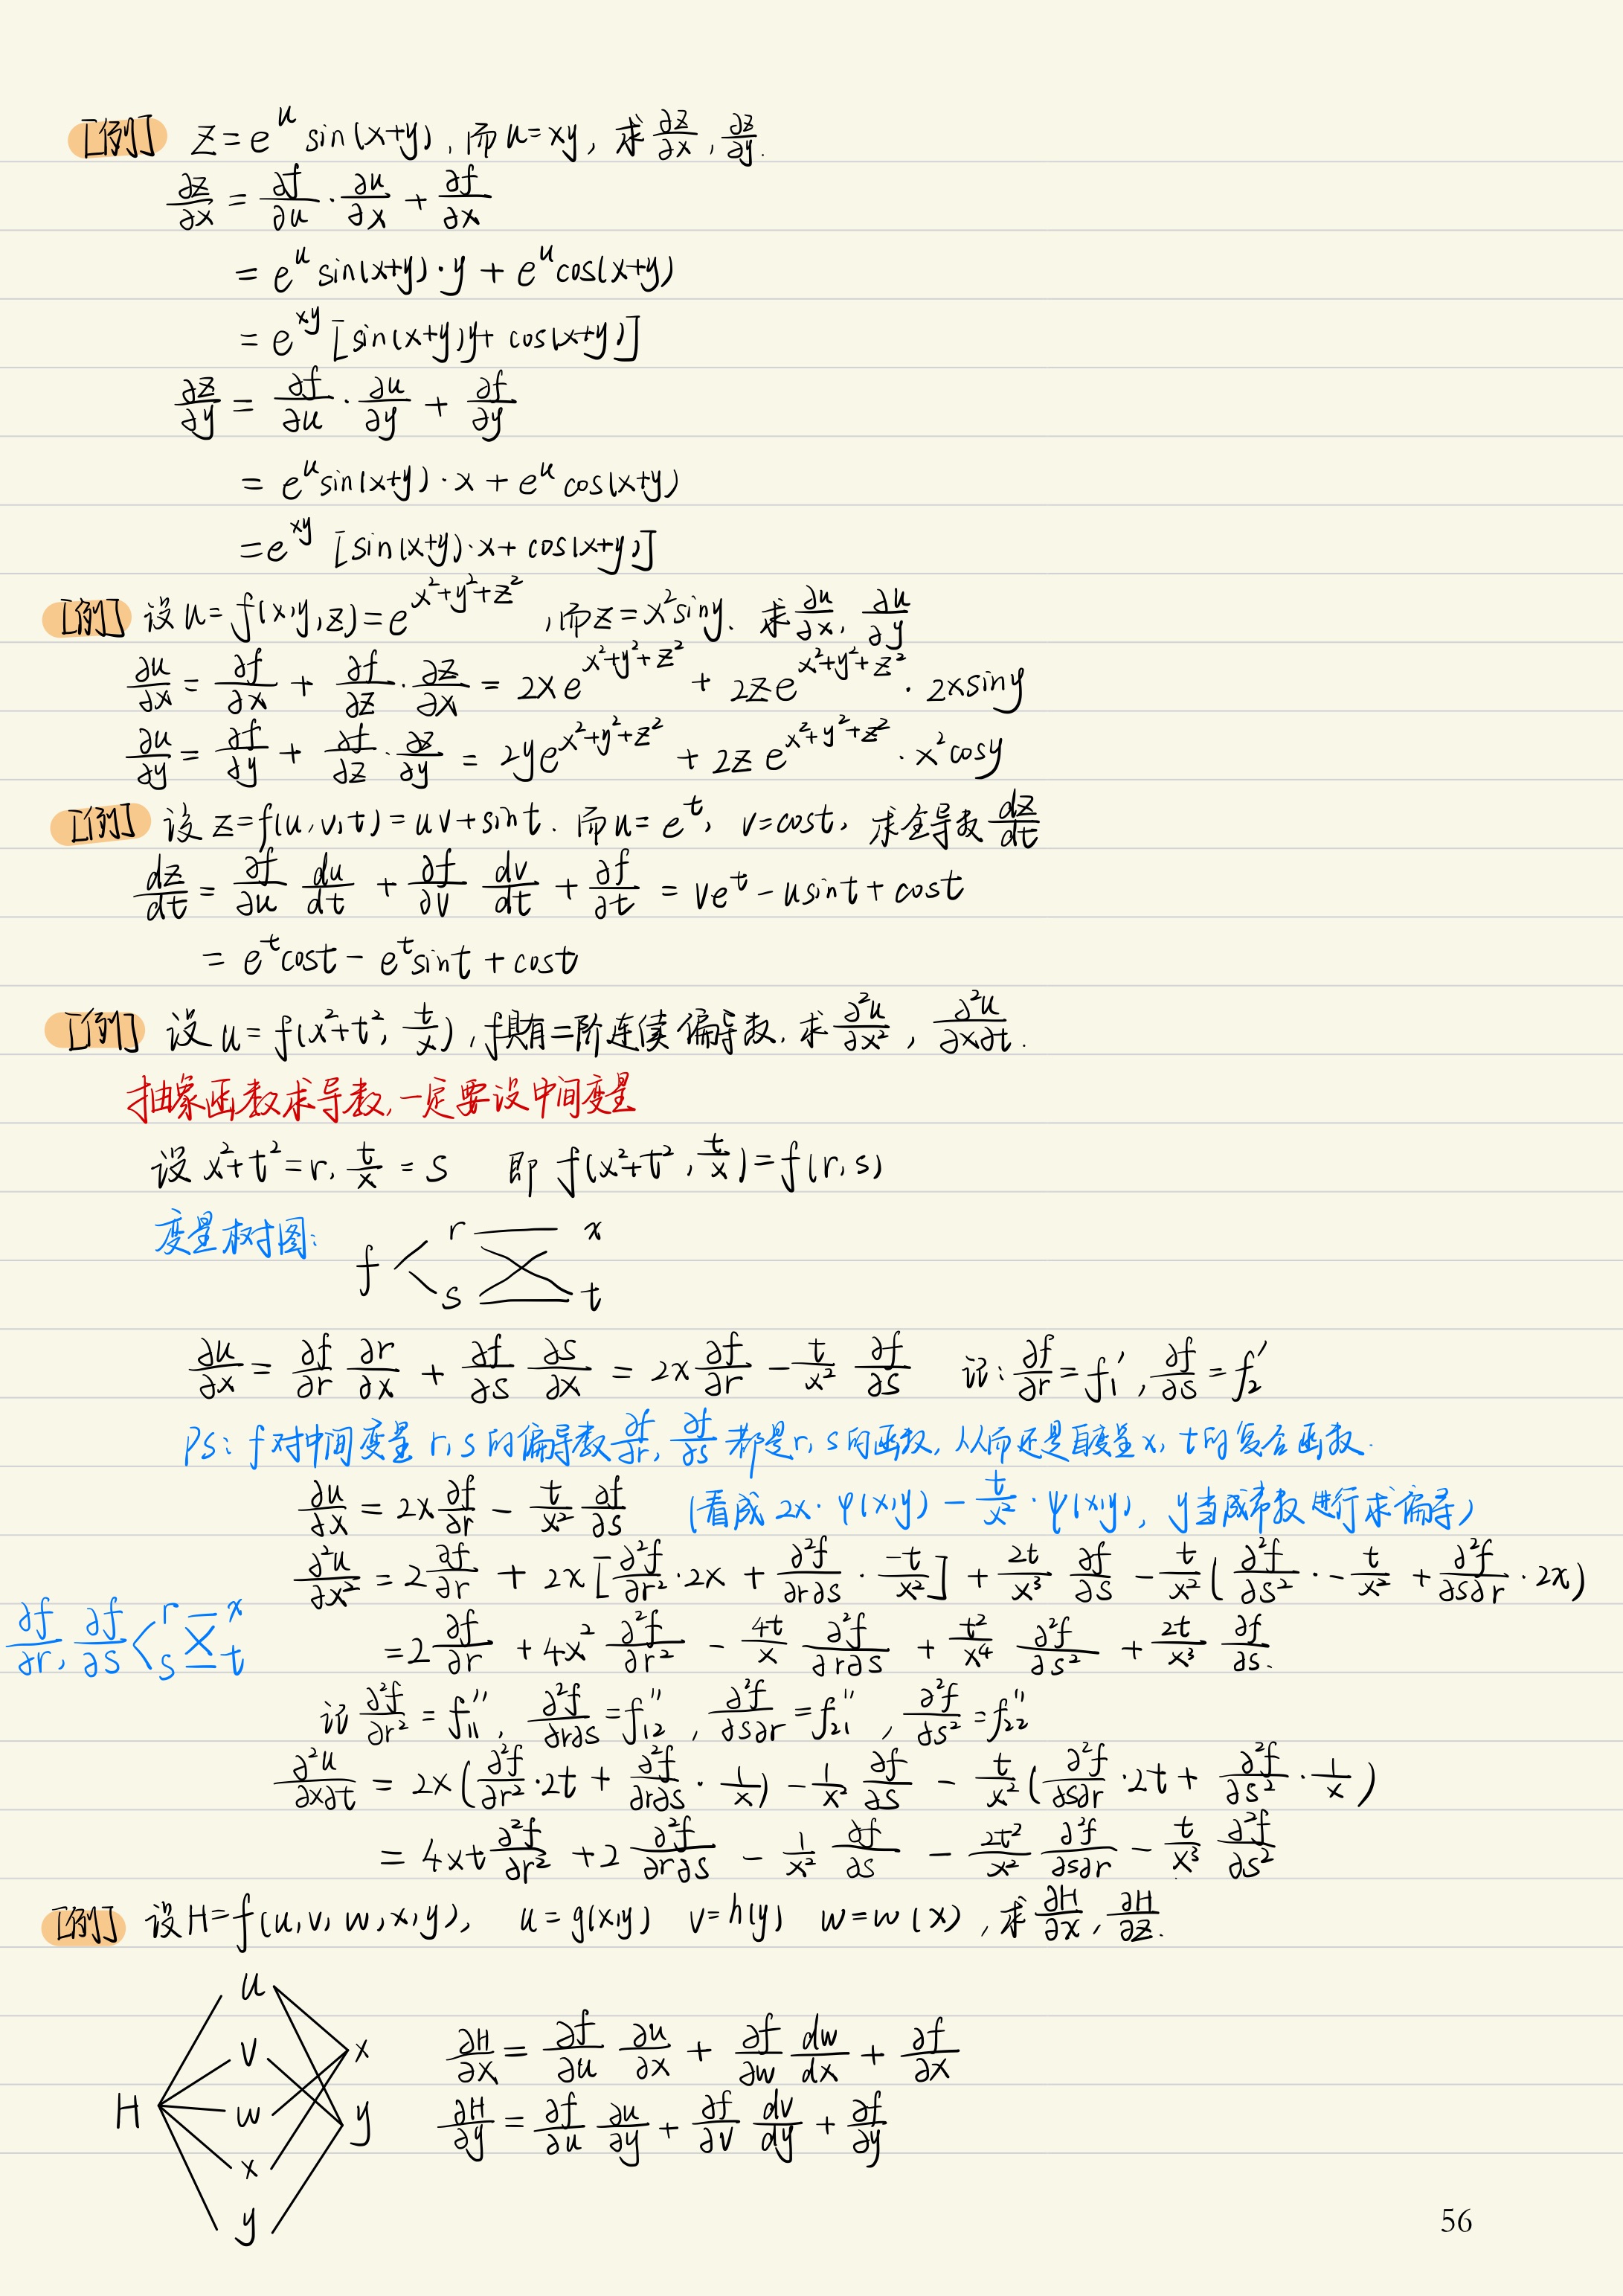 [例] z=e^u sin(x+y), 而u=xy, 求∂z/∂x, ∂z/∂y.
∂z/∂x = ∂f/∂u · ∂u/∂x + ∂f/∂x
= e^u sin(x+y)·y + e^u cos(x+y)
= e^xy [sin(x+y)y+ cos(x+y)]
∂z/∂y = ∂f/∂u · ∂u/∂y + ∂f/∂y
= e^u sin(x+y)·x + e^u cos(x+y)
= e^xy [sin(x+y)·x+ cos(x+y)]
[例] 设u=f(x,y,z)=e^(x²+y²+z²), 而z=x²siny. 求∂u/∂x, ∂u/∂y
∂u/∂x = ∂f/∂x + ∂f/∂z·∂z/∂x = 2xe^(x²+y²+z²) + 2ze^(x²+y²+z²) · 2xsiny
∂u/∂y = ∂f/∂y + ∂f/∂z·∂z/∂y = 2ye^(x²+y²+z²) + 2ze^(x²+y²+z²) · x²cosy
[例] 设z=f(u,v,t)=uv+sint. 而u=e^t, v=cost, 求全导数dz/dt
dz/dt = ∂f/∂u du/dt + ∂f/∂v dv/dt + ∂f/∂t = ve^t - usint + cost
= e^t cost - e^t sint + cost
[例] 设u=f(x²+t², t/x), f具有二阶连续偏导数, 求∂²u/∂x², ∂²u/∂x∂t.
抽象函数求导数,一定要设中间变量
设x²+t²=r, t/x=s 即 f(x²+t², t/x)=f(r,s)
变量树图:
r x
f
s t
∂u/∂x = ∂f/∂r ∂r/∂x + ∂f/∂s ∂s/∂x = 2x ∂f/∂r - t/x² ∂f/∂s 记: ∂f/∂r=f₁′, ∂f/∂s=f₂′
PS: f对中间变量r,s的偏导数∂f/∂r, ∂f/∂s都是r,s的函数, 从而还是自变量x,t的复合函数.
∂u/∂x = 2x ∂f/∂r - t/x² ∂f/∂s (看成2x·φ(x,y) - t/x²·ψ(x,y), y当成常数进行求偏导)
∂²u/∂x² = 2 ∂f/∂r + 2x[∂²f/∂r²·2x + ∂²f/∂r∂s · -t/x²] + 2t/x³ ∂f/∂s - t/x²(∂²f/∂s² · -t/x² + ∂²f/∂s∂r · 2x)
∂f/∂r, ∂f/∂s r x s t
= 2 ∂f/∂r + 4x² ∂²f/∂r² - 4t/x ∂²f/∂r∂s + t²/x⁴ ∂²f/∂s² + 2t/x³ ∂f/∂s.
记 ∂²f/∂r²=f₁₁″, ∂²f/∂r∂s=f₁₂″, ∂²f/∂s∂r=f₂₁″, ∂²f/∂s²=f₂₂″
∂²u/∂x∂t = 2x(∂²f/∂r²·2t + ∂²f/∂r∂s · 1/x) - 1/x² ∂f/∂s - t/x²(∂²f/∂s∂r·2t + ∂²f/∂s² · 1/x)
= 4xt ∂²f/∂r² + 2 ∂²f/∂r∂s - 1/x² ∂f/∂s - 2t²/x² ∂²f/∂s∂r - t/x³ ∂²f/∂s²
[例] 设H=f(u,v,w,x,y), u=g(x,y) v=h(y) w=w(x), 求∂H/∂x, ∂H/∂z.
u
v x
H w y
x
y
∂H/∂x = ∂f/∂u ∂u/∂x + ∂f/∂w dw/dx + ∂f/∂x
∂H/∂y = ∂f/∂u ∂u/∂y + ∂f/∂v dv/dy + ∂f/∂y
56